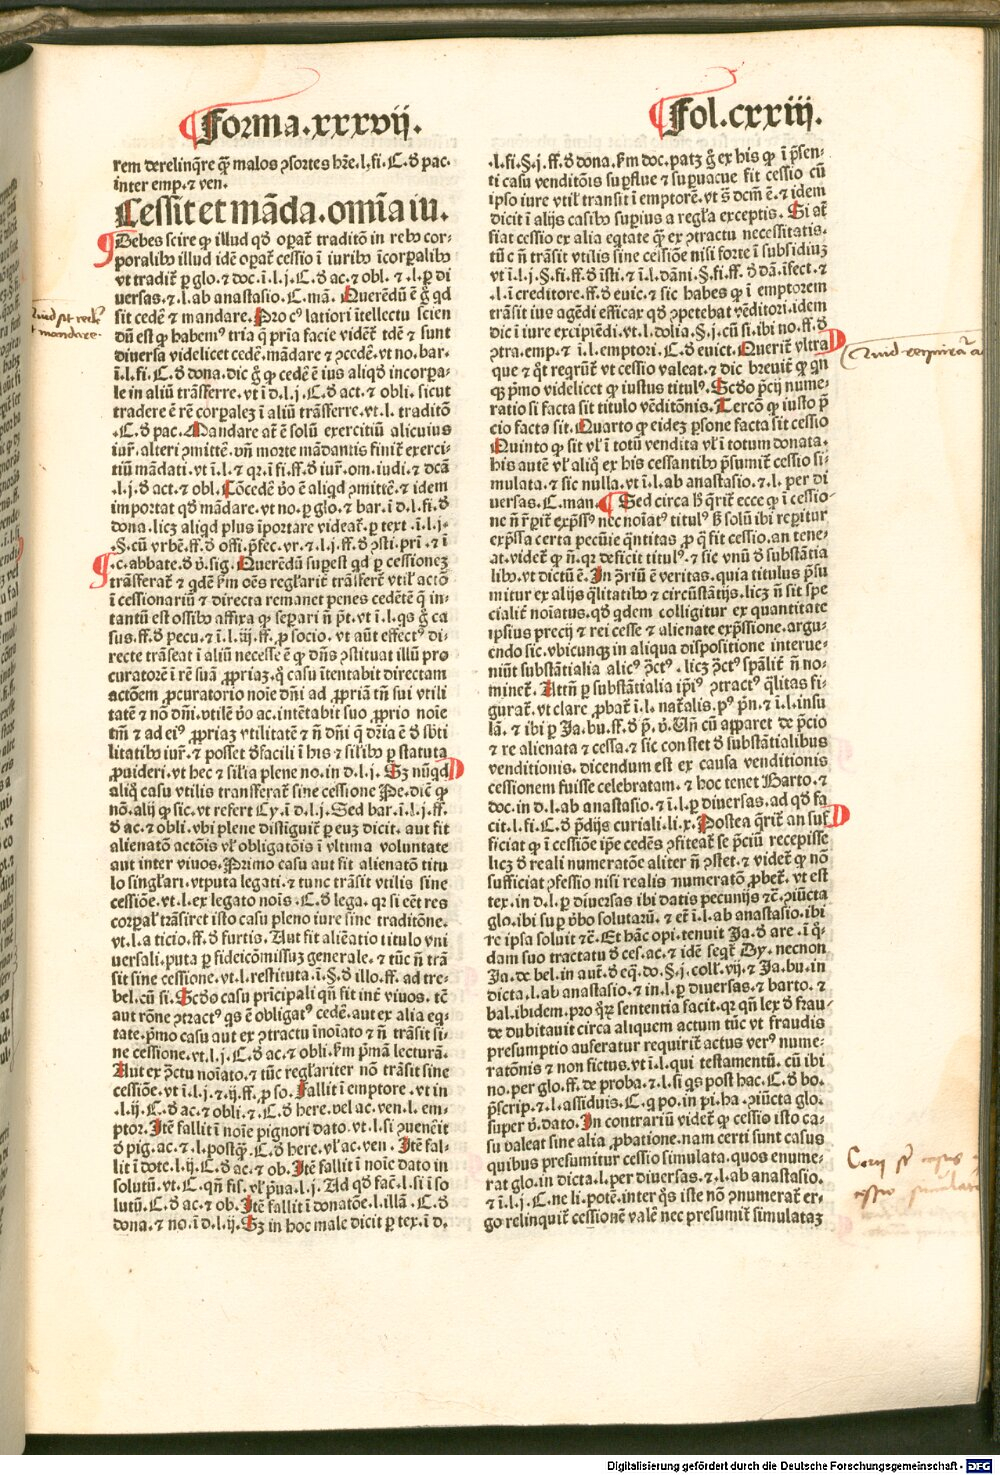 Forma.xxxvij.
Fol.cxxiij.
rem derelinq̄re q̄ȝ malos ↄsortes hr̄e.l.fi.C.ď pac.
inter emp.⁊ ven.
Cessit et māda.om̄ia iu.
Debes scire ꝙ illud qď oꝑat̄ traditō in rebꝰ cor-
poralibꝰ illud idē oꝑat̄ cessio ī iuribꝰ īcorꝑalibꝰ
vt tradit̄ ꝑ glo.⁊ doc.ī.l.j.C.ď ac.⁊ obl.⁊.l.ꝑ di
uersas.⁊.l.ab anastasio.C.mā. Querēdū ē ḡ qd
sit cedē ⁊ mandare. Pro cꝰ latiori ītellectu scien
dū est ꝙ habemꝰ tria q̄ pria facie videt̄ idē ⁊ sunt
diuersa videlicet cedē.mādare ⁊ ↄcedē.vt no.bar.
ī.l.fi.C.ď dona.dic ḡ ꝙ cedē ē ius aliqď incorꝑa-
le in aliū trāsferre.vt ī d.l.j.C.ď act.⁊ obli. sicut
tradere ē rē corꝑalez ī aliū trāsferre.vt.l. traditō
.C.ď pac. Mandare at̄ ē solū exercitiū alicuius
iur̄.alteri ꝓmittē.vn̄ morte mādantis finit̄ exerci-
tiū mādati.vt ī.l.⁊ qr.ī fi.ff.ď iur̄.om.iudi.⁊ dcā
.l.j.ď act.⁊ obl. Cōcedē v̄o ē aliqď ꝓmittē.⁊ idem
importat qď mādare.vt no.ꝑ glo.⁊ bar.ī d.l.fi.ď
dona.licȝ aliqď plus īportare videat̄.ꝑ text.ī.l.j.
.§.cū vrbē.ff.ď offi.p̄fec.vr.⁊.l.j.ff.ď ↄsti.pri.⁊ ī
.c.abbate.ď v̄.sig. Querēdū suꝑest qď ꝑ cessionez
trāsferat̄ ⁊ qdē km oēs regl'arit̄ trāsfert̄ vtil' actō
ī cessionariū ⁊ directa remanet penes cedētē q̄ in-
tantū est ossibꝰ affixa ꝙ seꝑari n̄ p̄t.vt ī.l.qs ḡ ca
sus.ff.ď pecu.⁊ ī.l.iij.ff.ꝓ socio. vt aūt effectꝰ di-
recte trāseat ī aliū necesse ē ꝙ dn̄s ↄstituat illū pro
curatorē ī rē suā ꝓpriaz.q̄ casu ītentabit directam
actōem ꝓcuratorio noīe dn̄i ad ꝓpriā tn̄ sui vtili
tatē ⁊ nō dn̄i.vtilē v̄o ac.intētabit suo ꝓprio noīe
tm̄ ⁊ ad eiꝰ ꝓpriaz vtilitatē ⁊ n̄ dn̄i q̄ dr̄ia ē ď sbti
litatibꝰ iur̄.⁊ posset ďfacili ī his ⁊ sil'ibꝰ ꝑ statuta
ꝓuideri.vt hec ⁊ sil'ia plene no.in d.l.j. Sȝ nūqd
aliq̄ casu vtilis transferat̄ sine cessione Pe.dic̄ ꝙ
nō.alij ꝙ sic.vt refert Cy.ī d.l.j. Sed bar.ī.l.j.ff.
ď ac.⁊ obli.vbi plene distīguit̄ ꝑ euȝ dicit. aut fit
alienatō actōis vl' obligatōis ī vltima voluntate
aut inter viuos. Primo casu aut fit alienatō titu
lo singl'ari.vtputa legati.⁊ tunc trāsit vtilis sine
cessiōe.vt.l.ex legato nois.C.ď lega. qr si cēt res
corꝑal' trāsiret isto casu pleno iure sine traditōne.
vt.l.a ticio.ff.ď furtis. Aut fit aliēatio titulo vni
uersali.puta ꝑ fideicōmissuȝ generale.⁊ tūc n̄ trā
sit sine cessione.vt.l.restituta.ī.§.ď illo.ff.ad tre-
bel.cū si. Scďo casu prīcipali qn̄ fit int̄ viuos. tē
aut rōne ↄtractꝰ qs ē obligatꝰ cedē.aut ex alia eq-
tate.pmo casu aut ex ↄtractu īnoīato ⁊ n̄ trāsit si-
ne cessione.vt.l.j.C.ď ac.⁊ obli.km pmā lecturā.
Aut ex ↄ̄ctu noīato.⁊ tūc regl'ariter nō trāsit sine
cessiōe.vt ī.l.j.⁊ ij.ff.ꝓ so. Fallit ī emptore.vt in
.l.ij.C.ď ac.⁊ obli.⁊.C.ď here.vel ac.ven.l.em-
ptor. Itē fallit ī noīe pignori dato.vt.l.si ↄuenēit
ď pig.ac.⁊.l.postq̄.C.ď here.vl' ac.ven. Itē fal-
lit ī dote.l.ij.C.ď ac.⁊ ob. Itē fallit ī noīe dato in
solutū.vt.C.qn̄ fis.vl' pua.l.j. Ad qď fac̄.l.si ī so
lutū.C.ď ac.⁊ ob. Itē fallit ī donatōe.l.illā.C.ď
dona.⁊ no.ī d.l.ij. Sȝ in hoc male dicit ꝑ tex.ī d.
.l.fi.§.j.ff.ď dona.km doc.patȝ ḡ ex his ꝙ ī p̄sen-
ti casu venditōis suꝑflue ⁊ suꝑuacue fit cessio cū
ipso iure vtil' transit ī emptorē.vt s̄ dcm̄ ē.⁊ idem
dicit ī alijs casibꝰ suꝑius a regl'a exceptis. Si at̄
fiat cessio ex alia eqtate q̄ȝ ex ↄtractu necessitatis.
tūc n̄ trāsit vtilis sine cessiōe nisi forte ī subsidiuȝ
vt ī.l.j.§.fi.ff.ď īsti.⁊ ī.l.dāni.§.fi.ff.ď dā.īfect.⁊
.l.ī creditore.ff.ď euic.⁊ sic habes ꝙ ī emptorem
trāsit iue agēdi efficax qď ↄpetebat vēditori.idem
dic ī iure excipiēdi.vt.l.dolia.§.j.cū si.ibi no.ff.ď
ↄtra.emp.⁊ ī.l.emptori.C.ď euict. Querit̄ vltra
que ⁊ qt̄ reqrūt̄ vt cessio valeat.⁊ dic breuit̄ ꝙ qn
qȝ pmo videlicet ꝙ iustus titulꝰ. Scďo p̄cij nume-
ratio si facta sit titulo vēditōnis. Tercō ꝙ iusto p̄
cio facta sit. Quarto ꝙ eideȝ ꝑsone facta sit cessio
Quinto ꝙ sit vl' ī totū vendita vl' ī totum donata.
his autē vl' aliq̄ ex his cessantibꝰ p̄sumit̄ cessio si-
mulata.⁊ sic nulla.vt ī.l.ab anastasio.⁊.l. per di
uersas.C.man. Sed circa h̄ q̄rit̄ ecce ꝙ ī cessio-
ne n̄ r̄perit̄ exp̄ssꝰ nec noīatꝰ titulꝰ h̄ solū ibi reperitur
exp̄ssa certa pecūie qntitas ꝓ q̄ fit cessio.an tene-
at.videt̄ ꝙ n̄.qr deficit titulꝰ.⁊ sic vnū ď substātia
libꝰ.vt dictū ē. In ↄriū ē veritas. quia titulus p̄su
mitur ex alijs qlitatibꝰ ⁊ circūstātijs.licȝ n̄ sit spe
cialit̄ noīatus.qď qdem colligitur ex quantitate
ipsius precij ⁊ rei cesse ⁊ alienate exp̄ssione.argu-
endo sic.vbicunqȝ in aliqua dispositione interue-
niūt substātialia alicꝰ ↄ̄ctꝰ.licȝ ↄ̄ctꝰ spālit̄ n̄ no-
minet̄. Attn̄ ꝑ substātialia ip̄iꝰ ↄtractꝰ qlitas fi-
gurat̄.vt clare ꝓbat̄ ī.l. nat̄alis.pꝰ p̄n.⁊ ī.l.insu
lā.⁊ ibi ꝑ Ja.bu.ff.ď p̄.v̄. Un̄ cū apparet de p̄cio
⁊ re alienata ⁊ cessa.⁊ sic constet ď substātialibus
venditionis. dicendum est ex causa venditionis
cessionem fuisse celebratam.⁊ hoc tenet Barto.⁊
doc.in d.l.ab anastasio.⁊ ī.l.ꝑ diuersas.ad qď fa
cit.l.fi.C.ď p̄dijs curiali.li.x. Postea q̄rit̄ an suf
ficiat ꝙ ī cessiōe īpe cedēs ↄfiteat̄ se p̄ciū recepisse
licȝ ď reali numeratōe aliter n̄ ↄstet.⁊ videt̄ ꝙ nō
sufficiat ↄfessio nisi realis numeratō ꝓbet̄.vt est
tex.in d.l.ꝑ diuersas ibi datis pecunijs ⁊c̄.⁊ ↄiūcta
glo.ibi suꝑ v̄bo solutarū.⁊ et̄ ī.l.ab anastasio.ibi
re ipsa soluit ⁊c̄. Et hāc opi.tenuit Ja.ď are.ī q̄-
dam suo tractatu ď ces.ac.⁊ idē seqt̄ Dy.necnon
Ja.de bel.in aut̄.ď eq̄.do.§.j.coll'.vij.⁊ Ja.bu.in
dicta.l.ab anastasio.⁊ in.l.ꝑ diuersas.⁊ barto.⁊
bal.ibidem.pro q̄ȝ sententia facit.qr qn̄ lex ď frau-
de dubitauit circa aliquem actum tūc vt fraudis
presumptio auferatur requirit̄ actus verꝰ nume-
ratōnis ⁊ non fictus.vt ī.l.qui testamentū.cū ibi
no.per glo.ff.de proba.⁊.l.si qs post hac.C.ď bo.
p̄scrip.⁊.l.assiduis.C.q̄ po.in pi.ha.ↄiūcta glo.
super v̄.dato. In contrariū videt̄ ꝙ cessio isto ca-
su valeat sine alia ꝓbatione.nam certi sunt casus
quibus presumitur cessio simulata.quos enume-
rat glo.in dicta.l.per diuersas.⁊.l.ab anastasio.
⁊ ī.l.j.C.ne li.potē.inter q̄s iste nō ↄnumerat̄ er-
go relinquit̄ cessionē valē nec presumit̄ simulataȝ
Digitalisierung gefördert durch die Deutsche Forschungsgemeinschaft - DFG